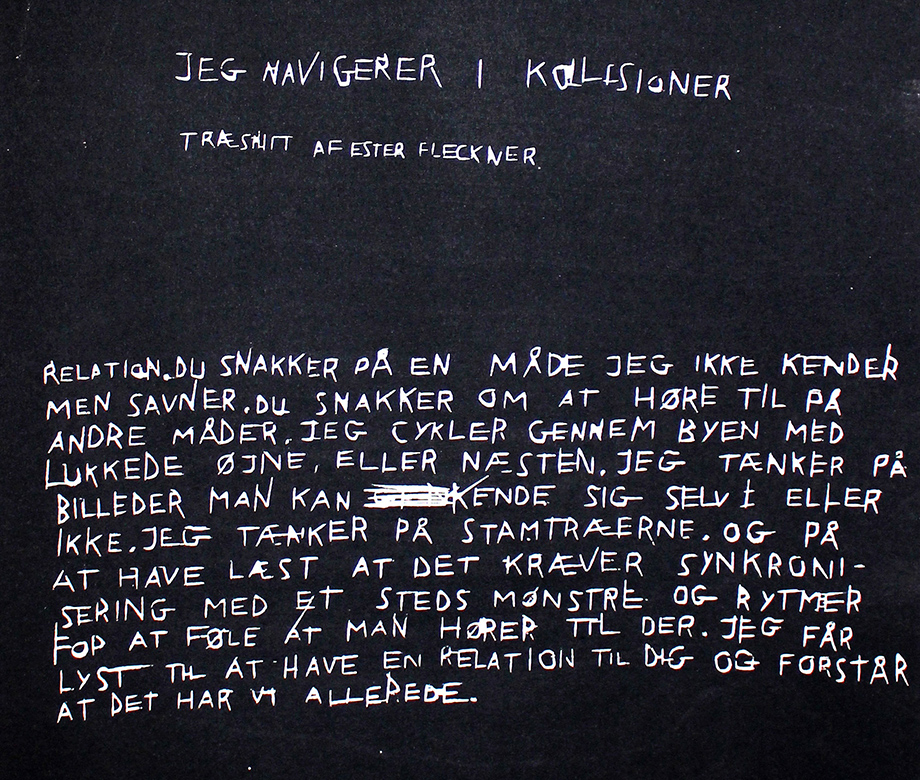 JEG NAVIGERER I KOLLISIONER
TRÆSNIT AF ESTER FLECKNER.
RELATION. DU SNAKKER PÅ EN MÅDE JEG IKKE KENDER
MEN SAVNER. DU SNAKKER OM AT HØRE TIL PÅ
ANDRE MÅDER. JEG CYKLER GENNEM BYEN MED
LUKKEDE ØJNE, ELLER NÆSTEN. JEG TÆNKER PÅ
BILLEDER MAN KAN KENDE SIG SELV I ELLER
IKKE. JEG TÆNKER PÅ STAMTRÆERNE. OG PÅ
AT HAVE LÆST AT DET KRÆVER SYNKRONI-
SERING MED ET STEDS MØNSTRE OG RYTMER
FOR AT FØLE AT MAN HØRER TIL DER. JEG FÅR
LYST TIL AT HAVE EN RELATION TIL DIG OG FORSTÅR
AT DET HAR VI ALLEREDE.